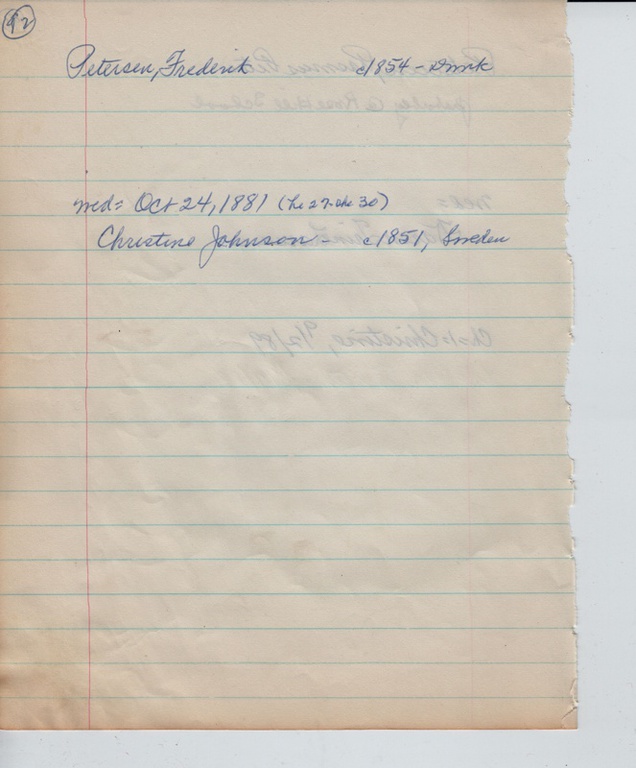 92
Petersen, Frederik c1854 - Dmrk
med= Oct 24, 1881 (he 27-she 30)
Christine Johnson - c1851, Sweden